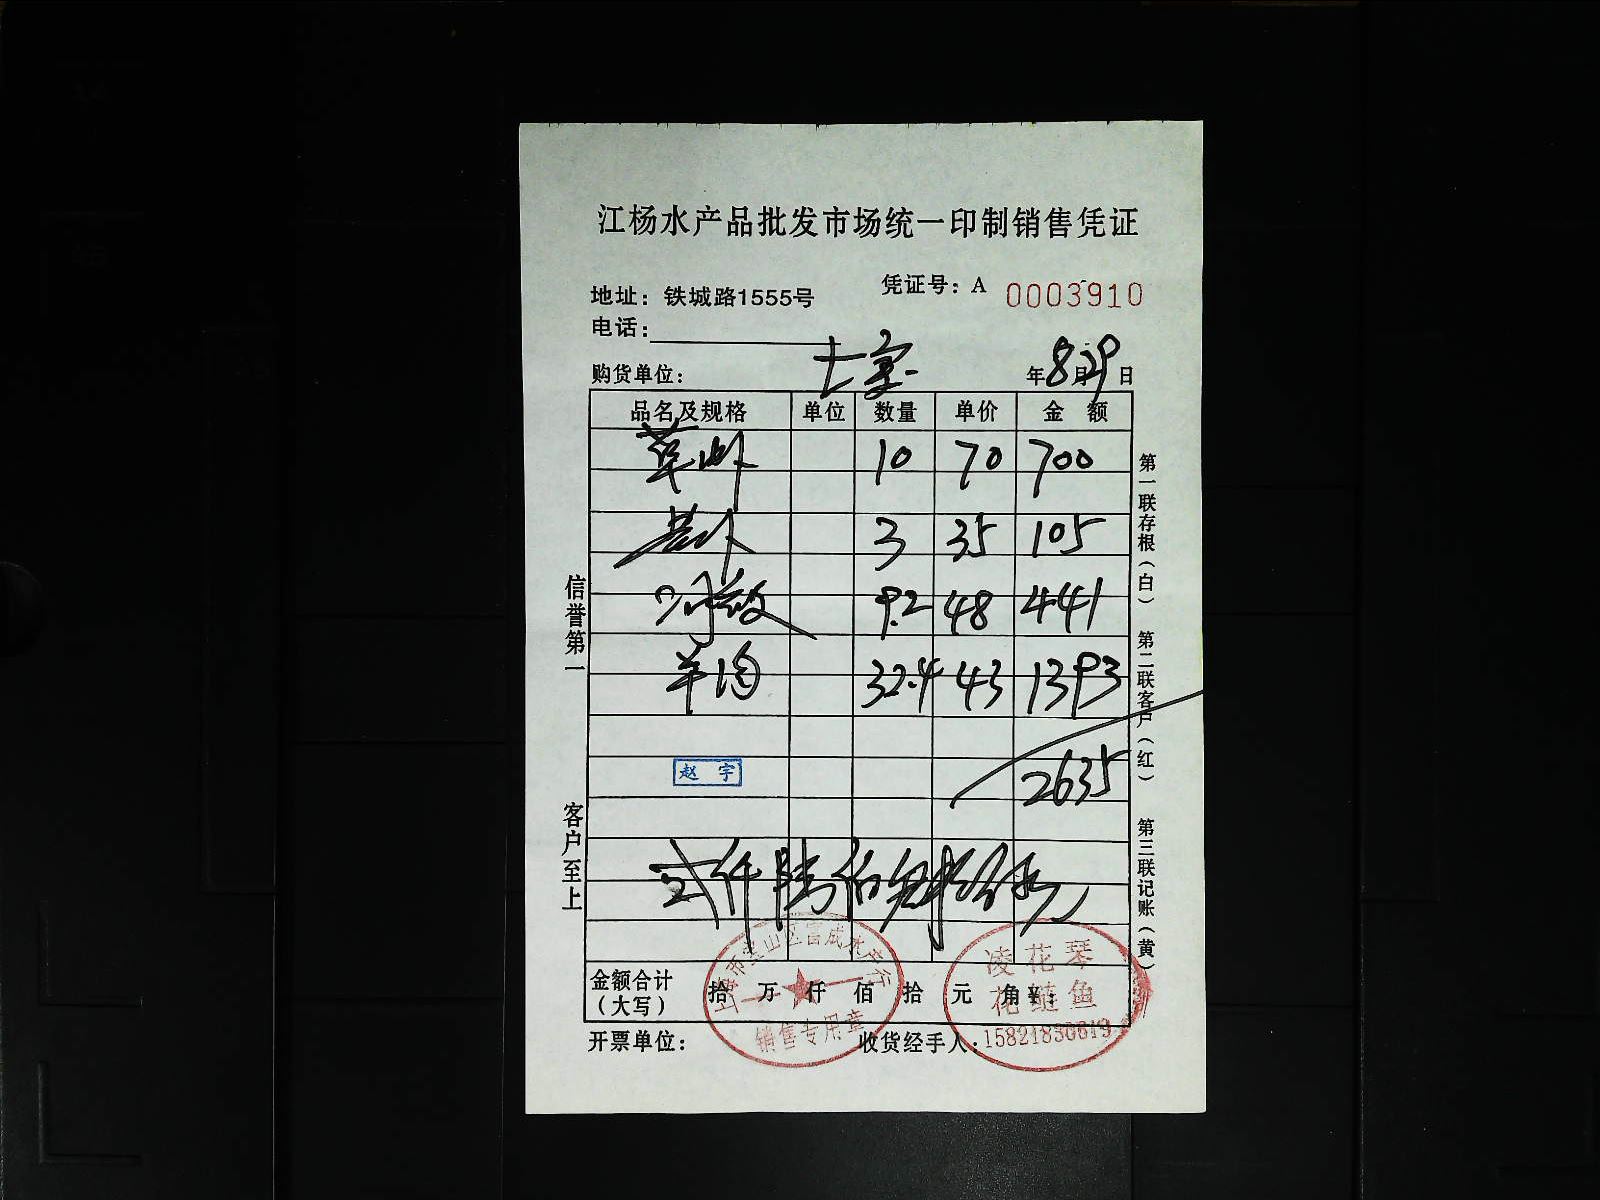 江杨水产品批发市场统一印制销售凭证
凭证号：A 0003910
地址：铁城路1555号
电话：
购货单位： 七宝 年8月29日
品名及规格 单位 数量 单价 金额
草虾 10 70 700
3 35 105
9.2 48 441
32.4 43 1393
赵宇
2635
弍仟陆佰
金额合计（大写） 拾 万 仟 佰 拾 元 角 ¥：
开票单位： 收货经手人：
信誉第一
客户至上
第一联存根（白） 第二联客户（红） 第三联记账（黄）
上海市宝山区富成水产行
销售专用章
凌花琴
花鲢鱼